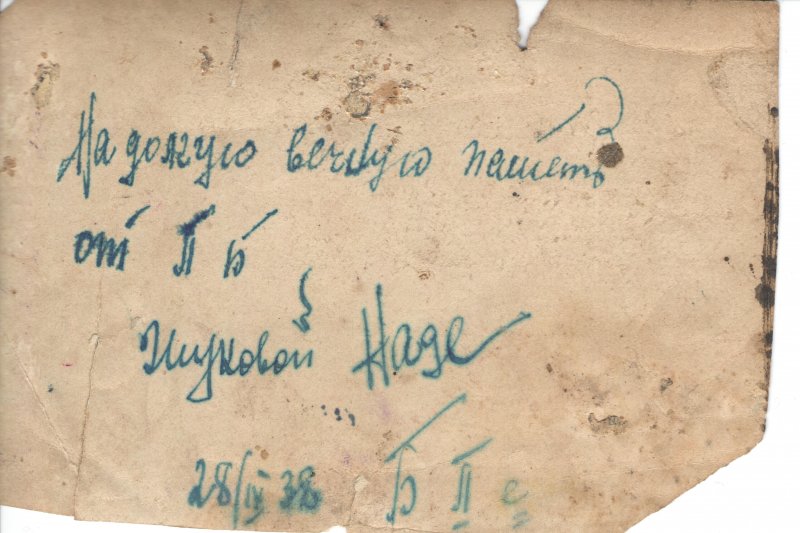 На долгую вечную память
от П Б
Жуковой Наде
28/IV 38 Б П е